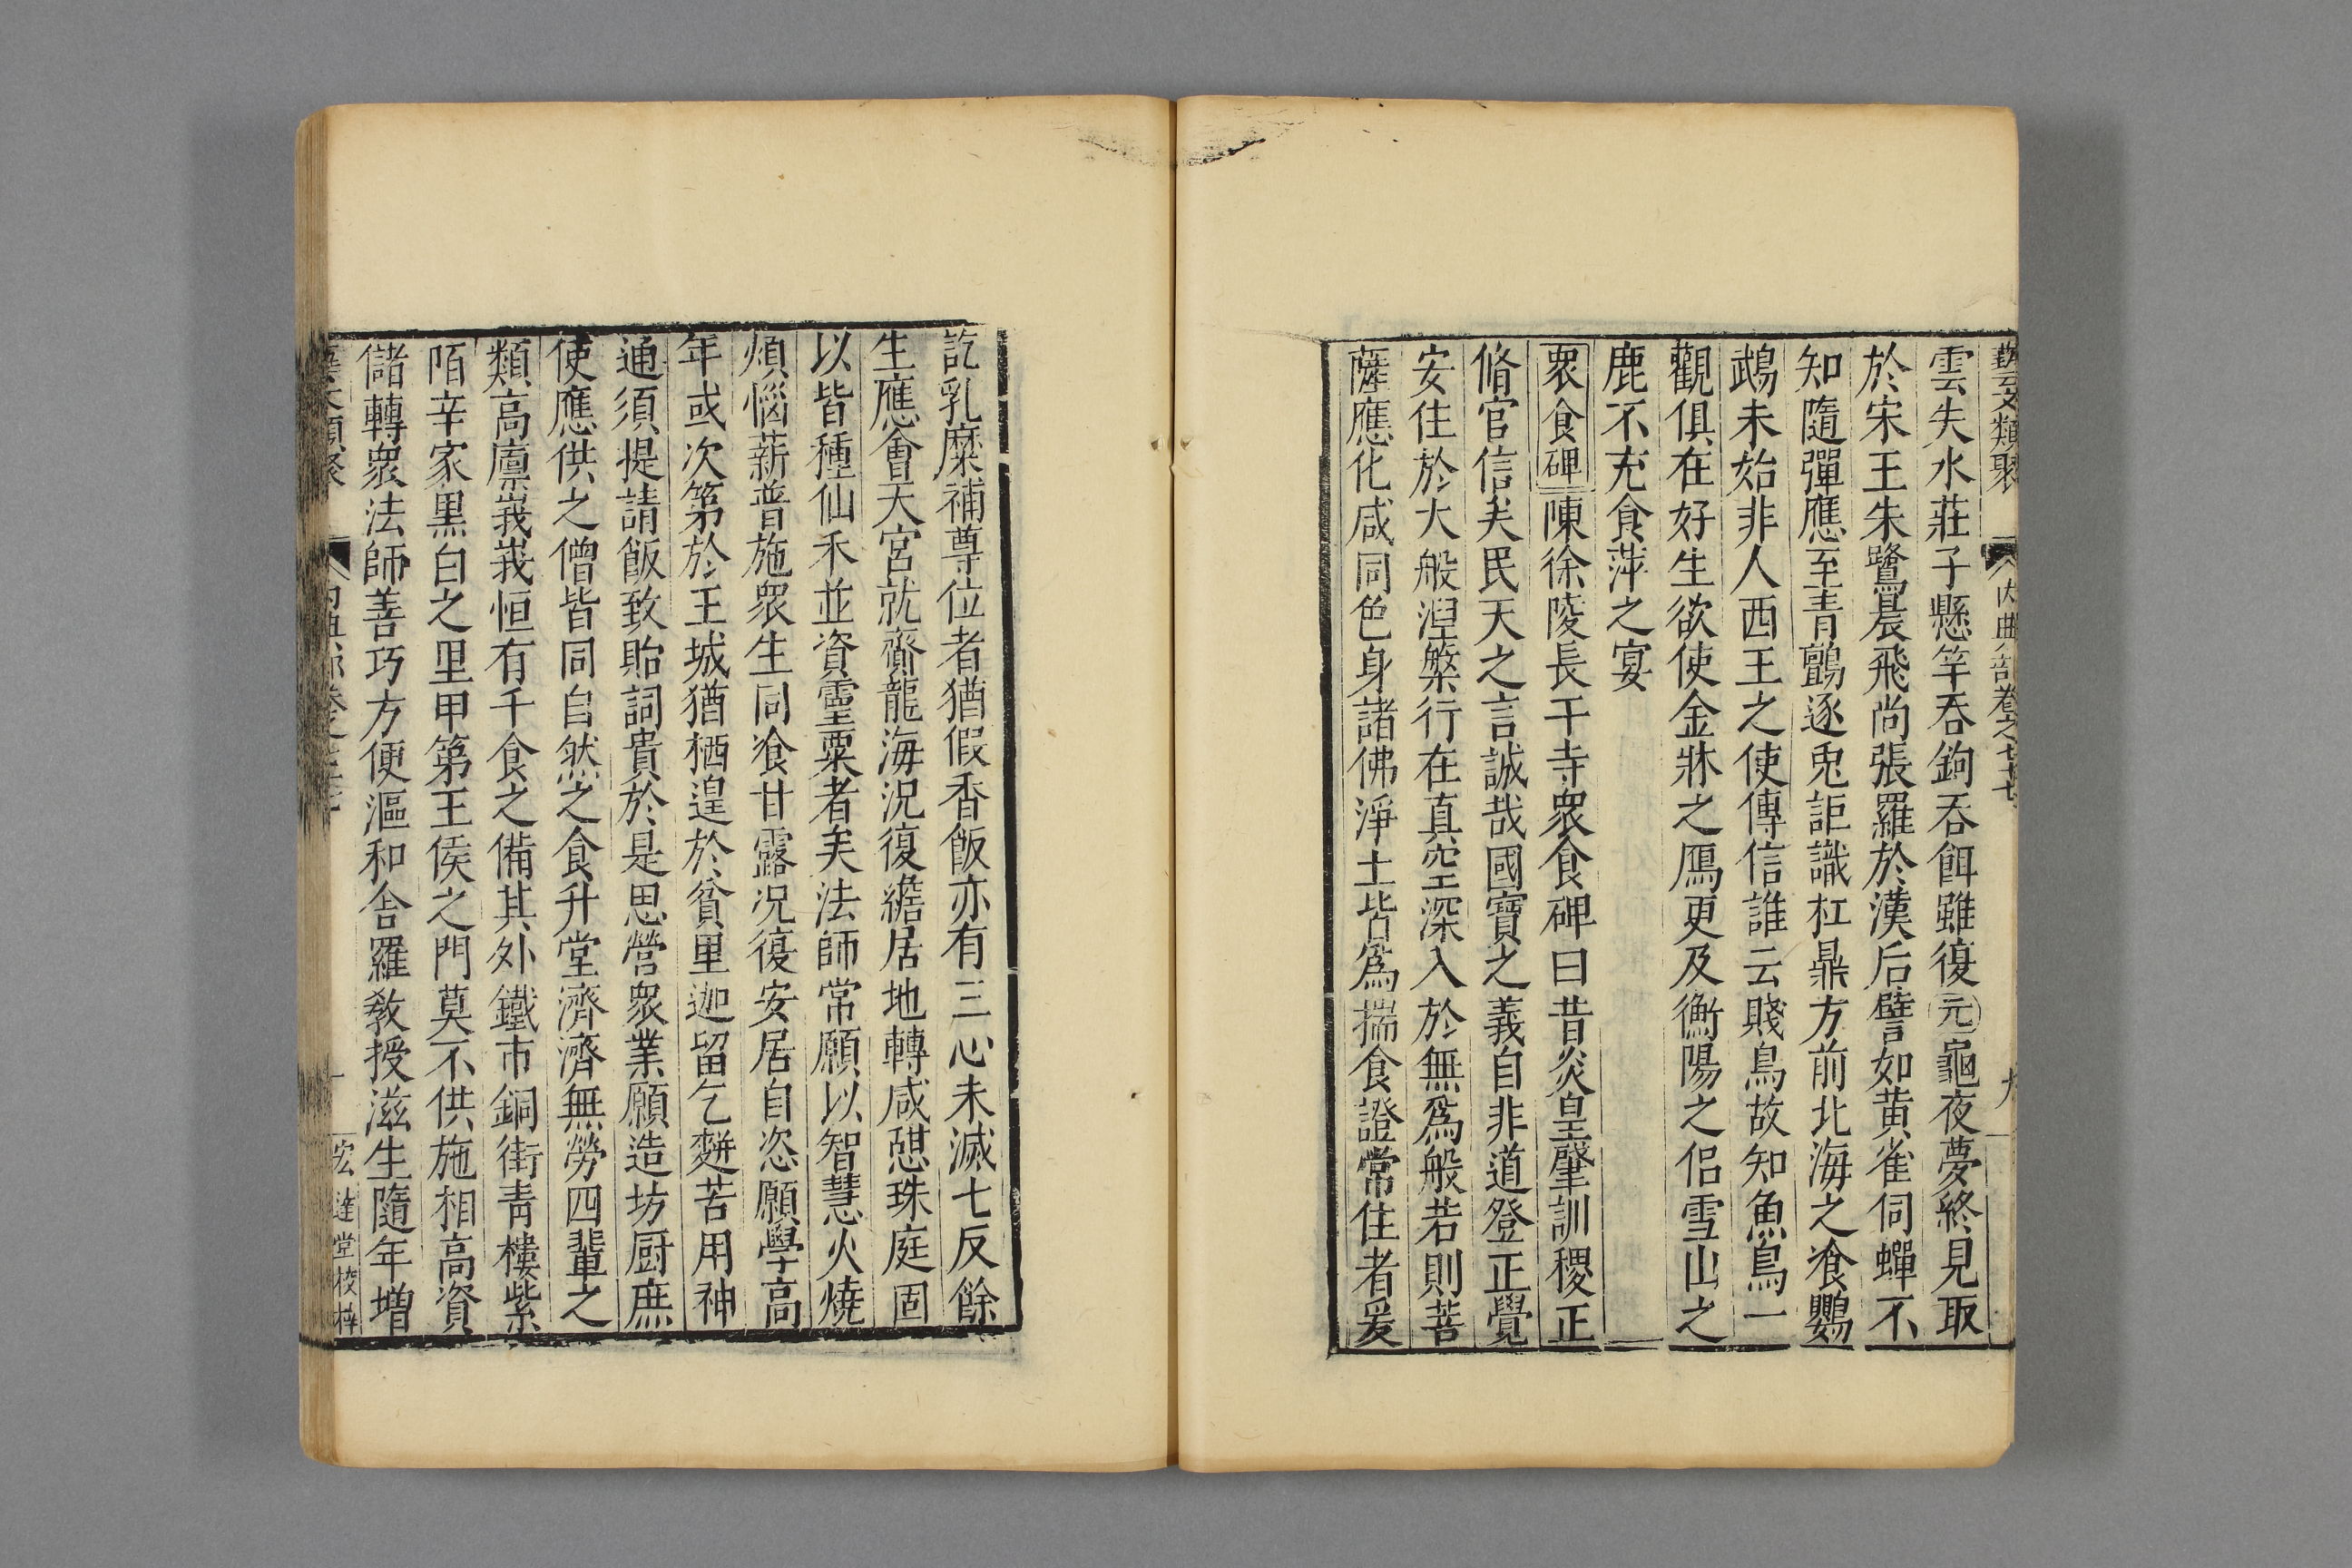 藝文類聚 內典部卷之七十七 九
雲失水莊子懸竿吞鉤吞餌雖復元龜夜夢終見取
於宋王朱鷺晨飛尚張羅於漢后譬如黃雀伺蟬不
知隨彈應至青鸇逐兎詎識杠鼎方前北海之飡鸚
鵡未始非人西王之使傳信誰云賤鳥故知魚鳥一
觀俱在好生欲使金牀之鴈更及衡陽之侶雪山之
鹿不充食萍之宴
衆食碑陳徐陵長干寺衆食碑曰昔炎皇肇訓稷正
脩官信矣民天之言誠哉國寶之義自非道登正覺
安住於大般涅槃行在真空深入於無爲般若則菩
薩應化咸同色身諸佛淨土皆爲揣食證常住者爰
訖乳糜補尊位者猶假香飯亦有三心未滅七反餘
生應會天宮就齋龍海況復纔居地轉咸憇珠庭固
以皆種仙禾並資靈粟者矣法師常願以智慧火燒
煩惱薪普施衆生同飡甘露況復安居自恣願學高
年或次第於王城猶栖遑於貧里迦留乞麨苦用神
通須提請飯致貽詞責於是思營衆業願造坊厨庶
使應供之僧皆同自然之食升堂濟濟無勞四輩之
類高廩峩峩恒有千食之備其外鐵市銅街青樓紫
陌辛家黑白之里甲第王侯之門莫不供施相高資
儲轉衆法師善巧方便漚和舍羅教授滋生隨年增
宏達堂校梓